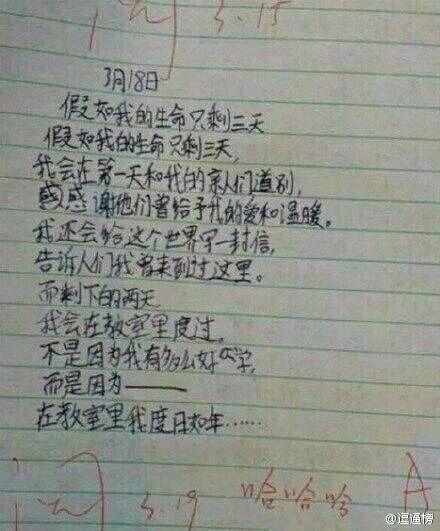 阅 3.15
3月18日
假如我的生命只剩三天
假如我的生命只剩三天,
我会在第一天和我的亲人们道别,
感谢他们曾给予我的爱和温暖。
我还会给这个世界写一封信,
告诉人们我曾来到过这里。
而剩下的两天
我会在教室里度过,
不是因为我有多么好学,
而是因为——
在教室里我度日如年……
阅 3.19 哈哈哈 A
@逗逼榜